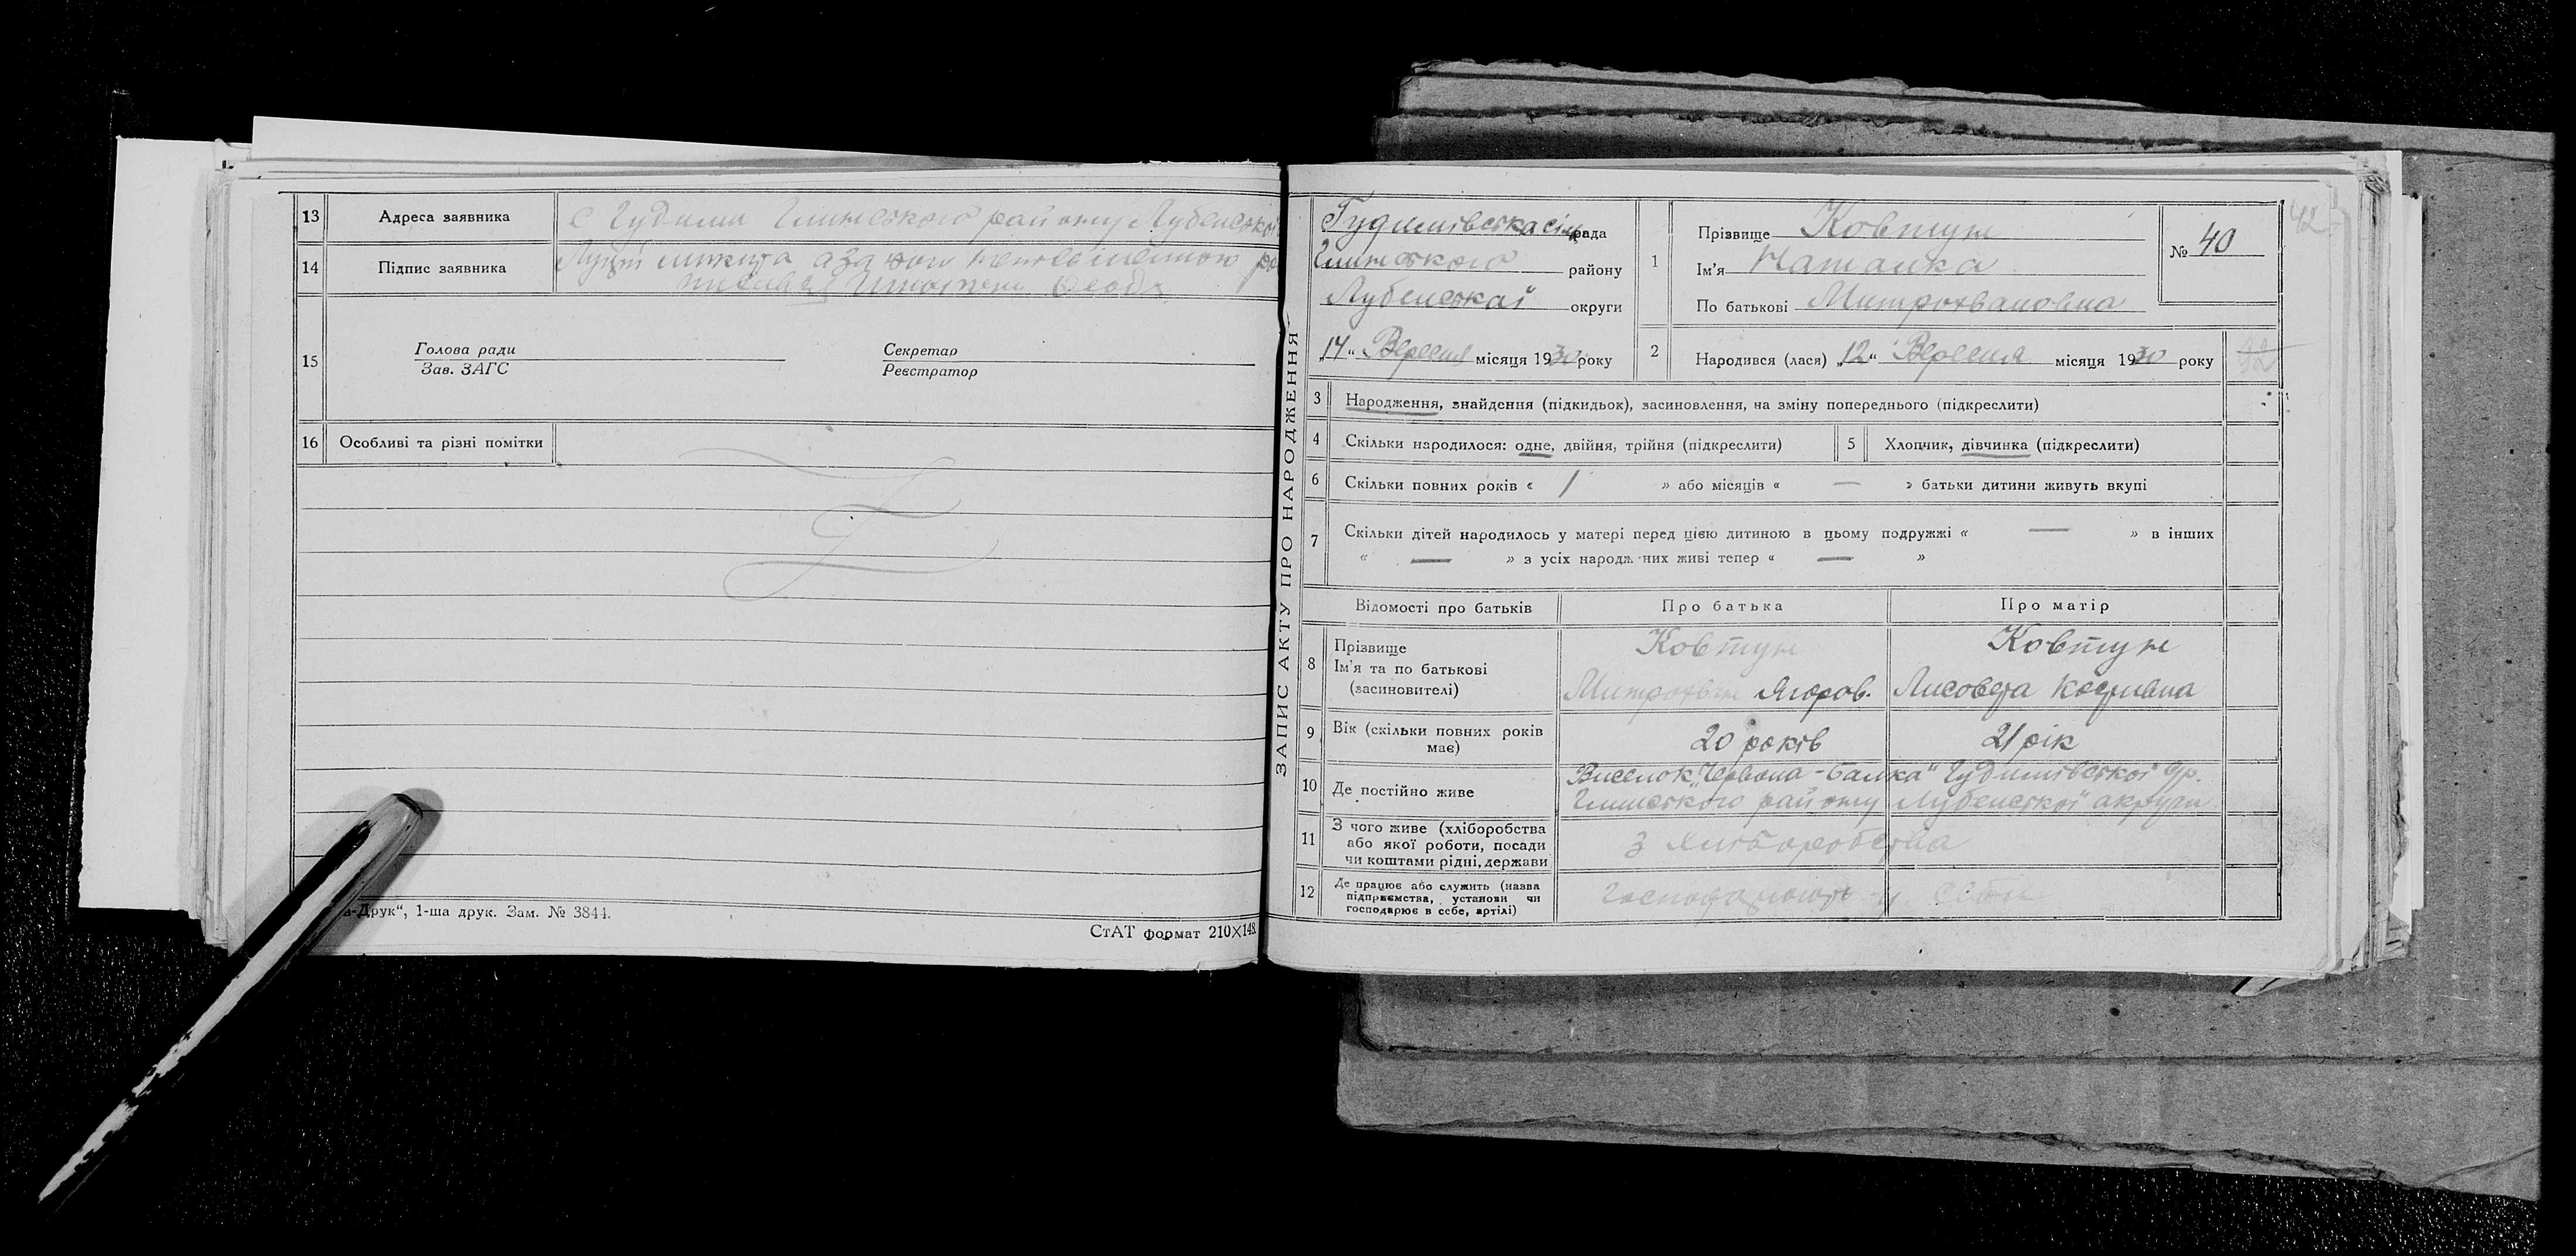 13 Адреса заявника с Гудими Глинського району Лубенської
14 Підпис заявника Луцій микита а за його неписьменного
15 Голова ради Секретар
Зав. ЗАГС Реєстратор
16 Особливі та різні помітки
в-Друк“, 1-ша друк. Зам. № 3844.
СтАТ формат 210X148.
ЗАПИС АКТУ ПРО НАРОДЖЕННЯ
Гудимівська сільрада
Глинського району
Лубенської округи
„14“ Вересня місяця 1930 року
1 Прізвище Ковтун
Ім'я Наталка
По батькові Митрохвановна
№ 40
42
2 Народився (лася) „12“ Вересня місяця 1930 року
3 Народження, знайдення (підкидьок), засиновлення, на зміну попереднього (підкреслити)
4 Скільки народилося: одне, двійня, трійня (підкреслити) 5 Хлопчик, дівчинка (підкреслити)
6 Скільки повних років « 1 » або місяців « — » батьки дитини живуть вкупі
7 Скільки дітей народилось у матері перед цією дитиною в цьому подружжі « — » в інших
« — » з усіх народж них живі тепер « — »
Відомості про батьків Про батька Про матір
8 Прізвище Ковтун Ковтун
Ім'я та по батькові
(засиновителі) Митрохван Ягоров. Лисовета
9 Вік (скільки повних років має) 20 років 21 рік
10 Де постійно живе Виселок „Червона-Балка“ Гудимівської
Глинського району Лубенської округи
11 З чого живе (хліборобства
або якої роботи, посади
чи коштами рідні, держави з хліборобства
12 Де працює або служить (назва
підприємства, установи чи
господарює в себе, артілі) господарюють у себе